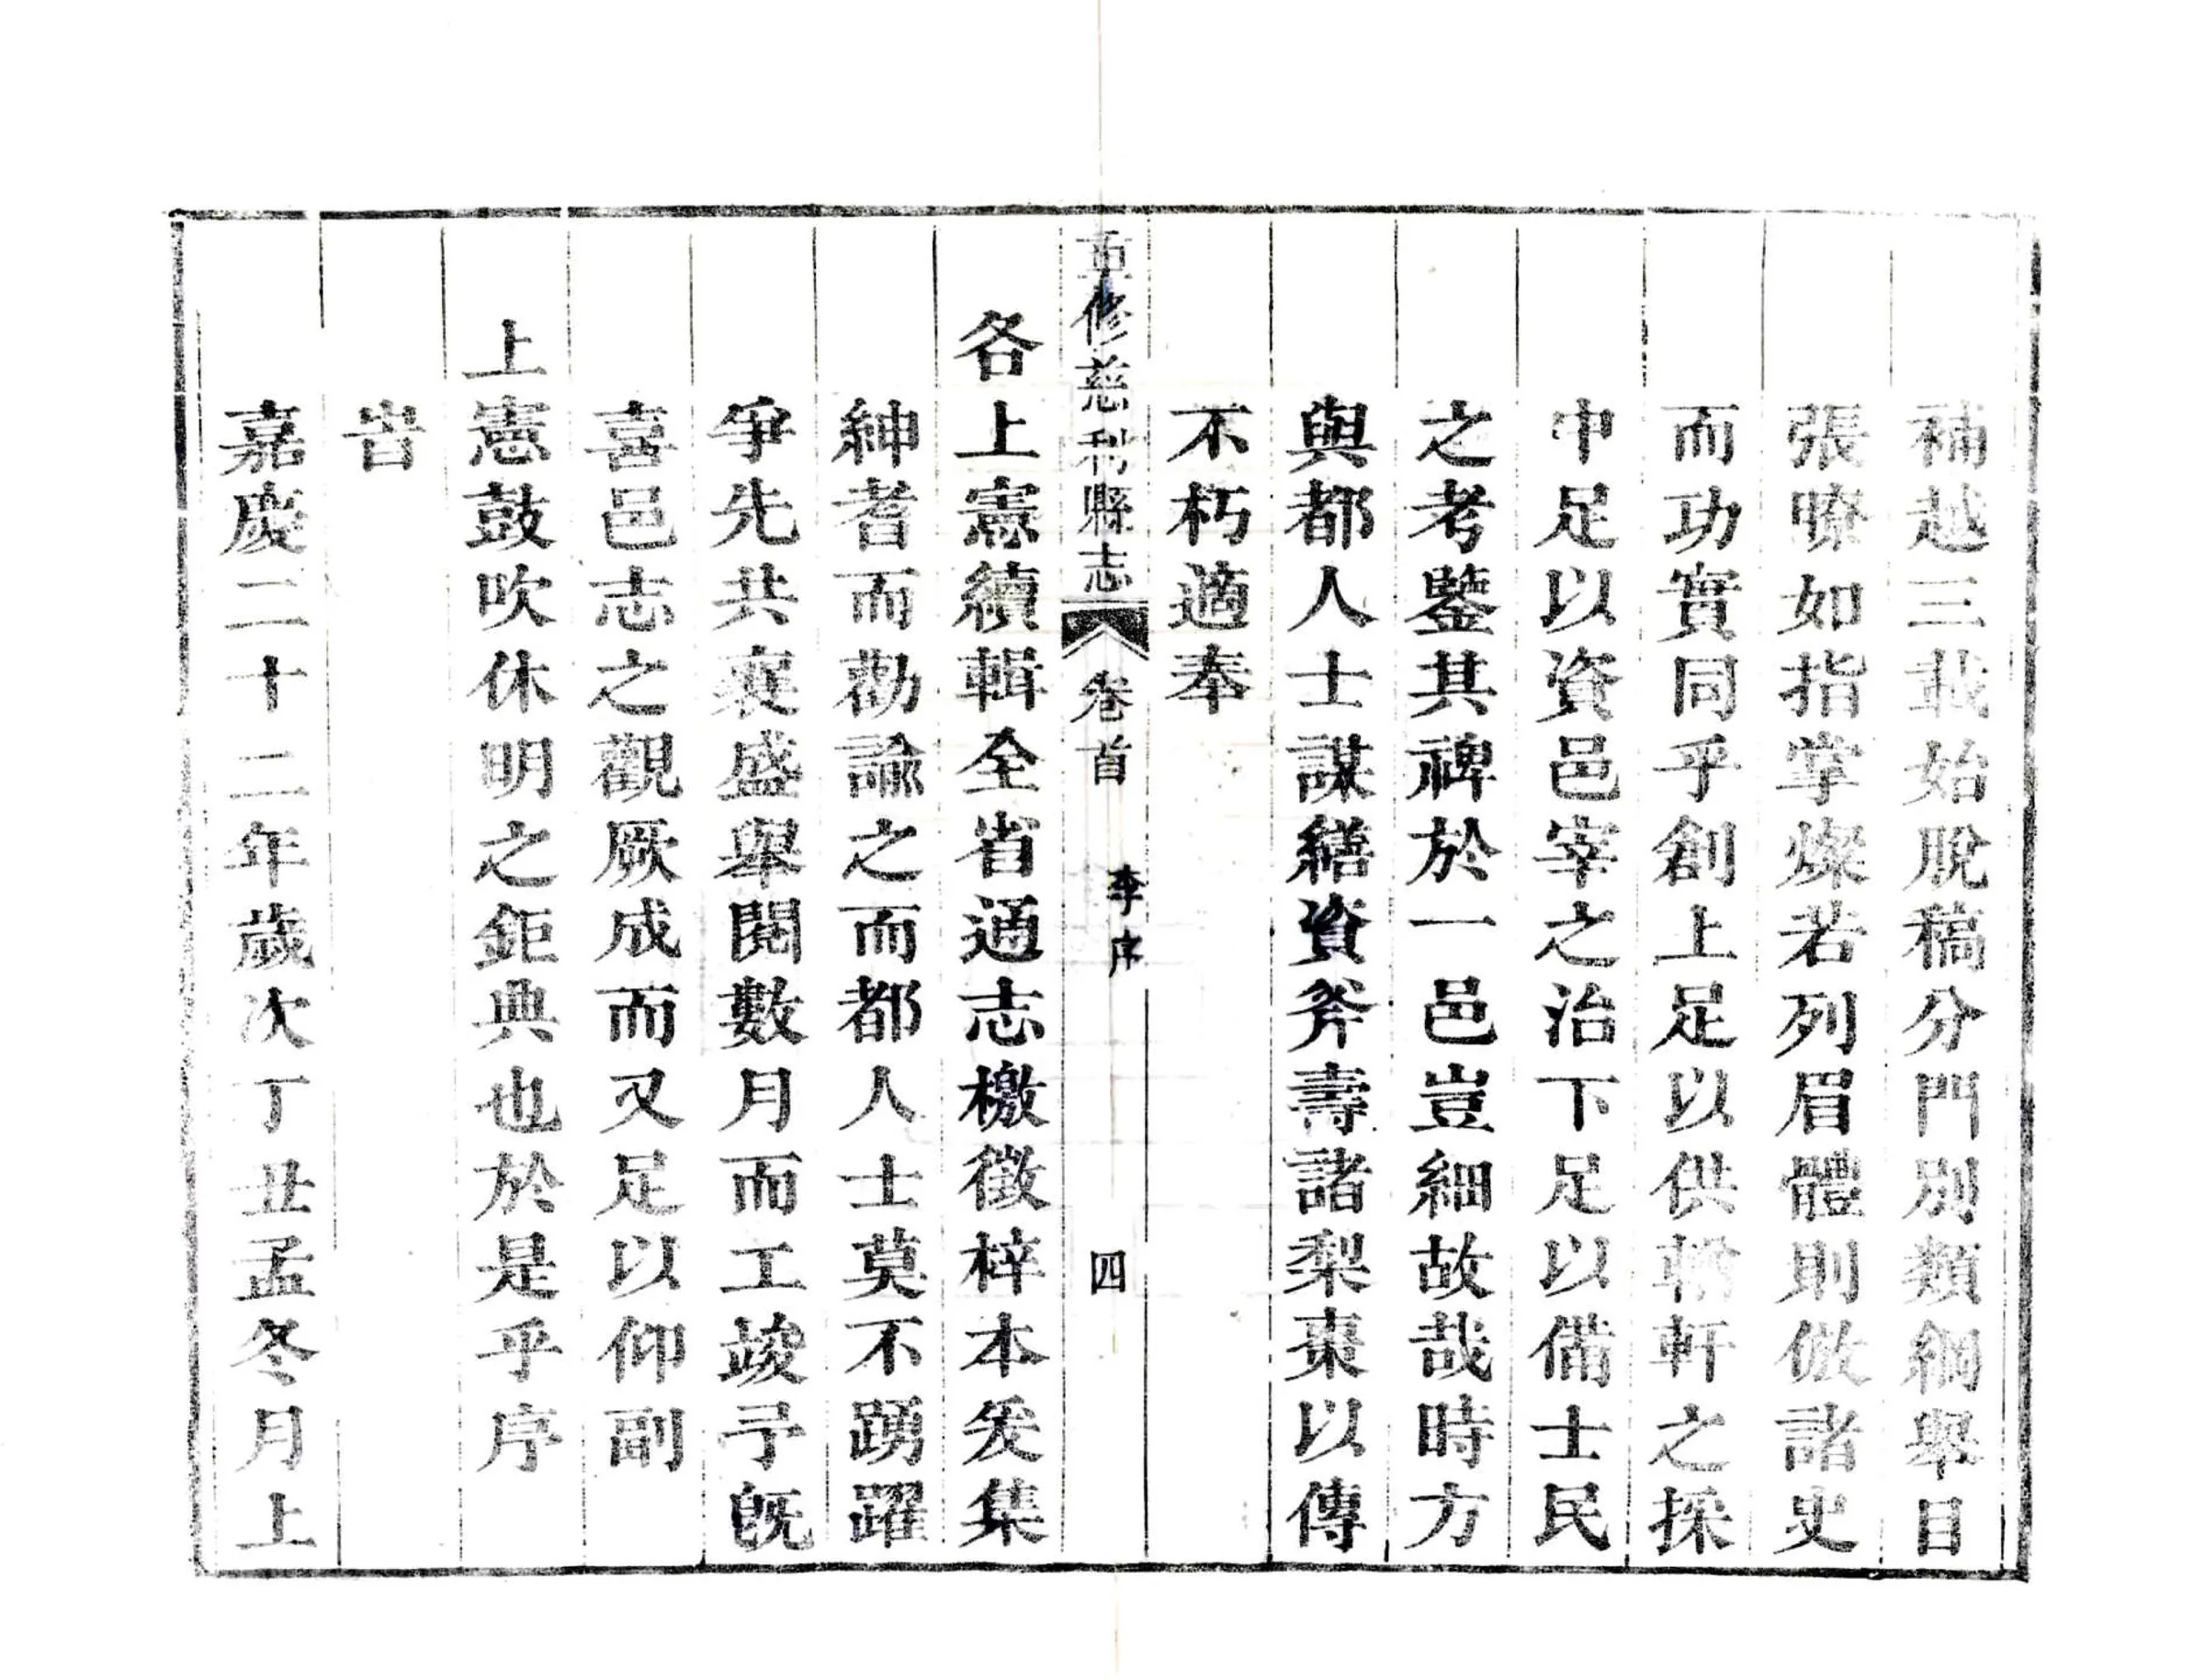 補越三載始脫稿分門別類綱舉目
張瞭如指掌燦若列眉體則倣諸史
而功實同乎創上足以供輶軒之採
中足以資邑宰之治下足以備士民
之考鑒其裨於一邑豈細故哉時方
與都人士謀繕資斧壽諸梨棗以傳
不朽適奉
重修慈利縣志
卷首
李序
四
各上憲續輯全省通志檄徵梓本爰集
紳耆而勸諭之而都人士莫不踴躍
爭先共襄盛舉閱數月而工竣予旣
喜邑志之觀厥成而又足以仰副
上憲鼓吹休明之鉅典也於是乎序
旹
嘉慶二十二年歲次丁丑孟冬月上